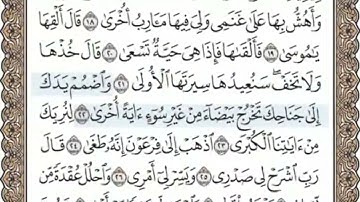 وَأَهُشُّ بِهَا عَلَىٰ غَنَمِى وَلِىَ فِيهَا مَـَٔارِبُ أُخْرَىٰ ١٨ قَالَ أَلْقِهَا
يَـٰمُوسَىٰ ١٩ فَأَلْقَىٰهَا فَإِذَا هِىَ حَيَّةٌ تَسْعَىٰ ٢٠ قَالَ خُذْهَا
وَلَا تَخَفْ ۖ سَنُعِيدُهَا سِيرَتَهَا ٱلْأُولَىٰ ٢١ وَٱضْمُمْ يَدَكَ
إِلَىٰ جَنَاحِكَ تَخْرُجْ بَيْضَآءَ مِنْ غَيْرِ سُوٓءٍ ءَايَةً أُخْرَىٰ ٢٢ لِنُرِيَكَ
مِنْ ءَايَـٰتِنَا ٱلْكُبْرَى ٢٣ ٱذْهَبْ إِلَىٰ فِرْعَوْنَ إِنَّهُۥ طَغَىٰ ٢٤ قَالَ
رَبِّ ٱشْرَحْ لِى صَدْرِى ٢٥ وَيَسِّرْ لِىٓ أَمْرِى ٢٦ وَٱحْلُلْ عُقْدَةً مِّن